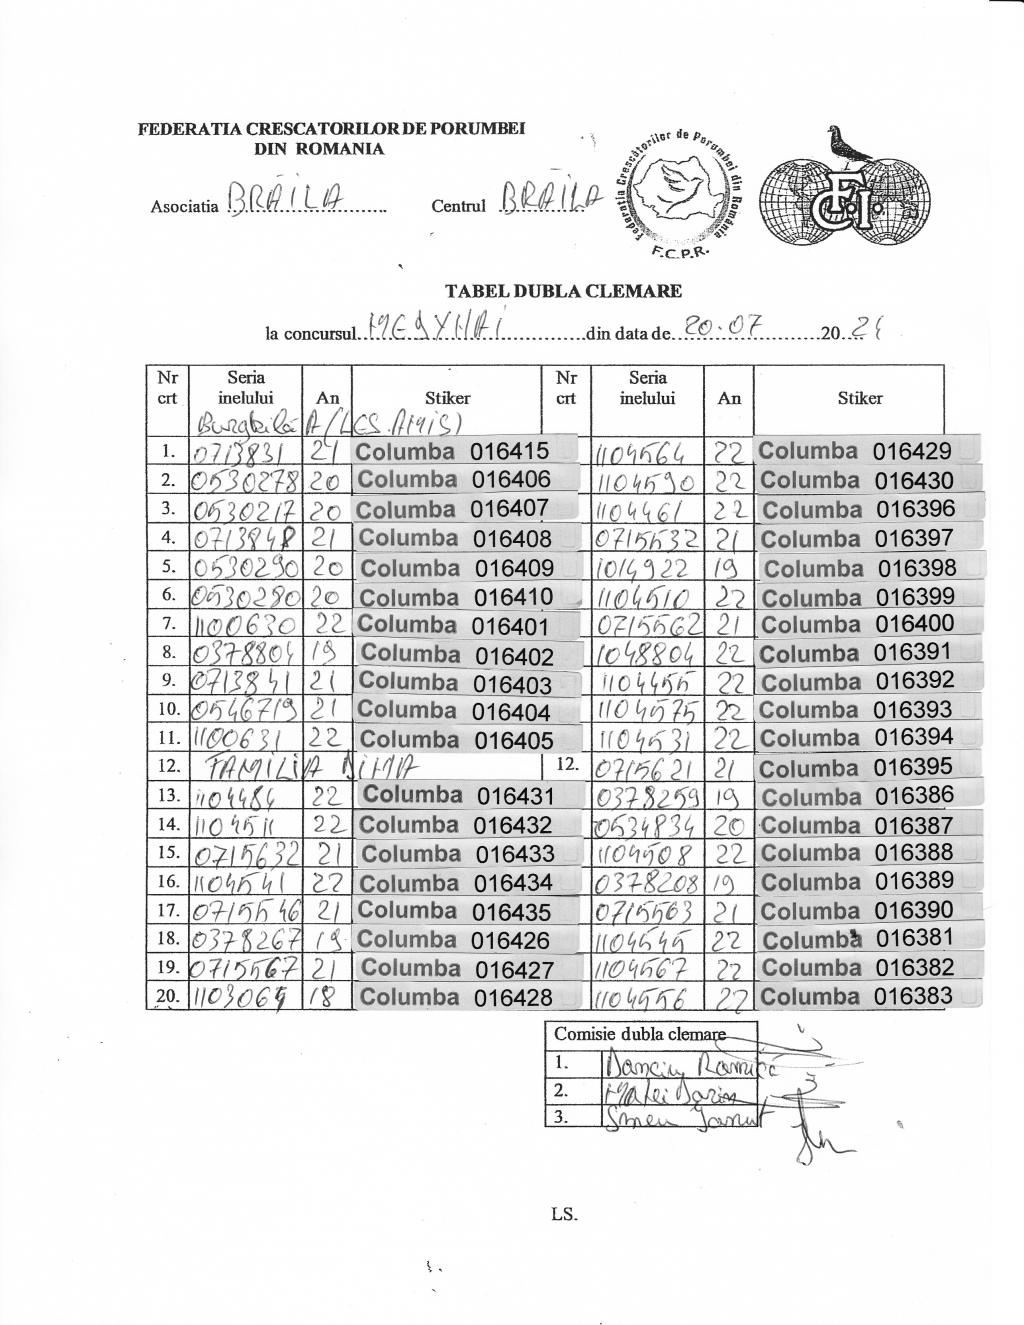 FEDERATIA CRESCATORILOR DE PORUMBEI
DIN ROMANIA
Federatia Crescătorilor de Porumbei din România
F.C.P.R.
F.C.I.
Asociatia BRĂILA Centrul BRĂILA
TABEL DUBLA CLEMARE
la concursul MEDYHAI din data de 20.07 2021
Nr crt Seria inelului An Stiker Nr crt Seria inelului An Stiker
1. 0713831 21 Columba 016415 1104564 22 Columba 016429
2. 0530278 20 Columba 016406 1104590 22 Columba 016430
3. 0530217 20 Columba 016407 1104461 22 Columba 016396
4. 0713848 21 Columba 016408 0715532 21 Columba 016397
5. 0530290 20 Columba 016409 1014922 19 Columba 016398
6. 0530280 20 Columba 016410 1104510 22 Columba 016399
7. 1100630 22 Columba 016401 0715562 21 Columba 016400
8. 0378804 19 Columba 016402 1048804 22 Columba 016391
9. 0713841 21 Columba 016403 1104455 22 Columba 016392
10. 0546719 21 Columba 016404 1104575 22 Columba 016393
11. 1100631 22 Columba 016405 1104531 22 Columba 016394
12. FAMILIA DIMA 12. 0715621 21 Columba 016395
13. 1104484 22 Columba 016431 0378259 19 Columba 016386
14. 1104511 22 Columba 016432 0534834 20 Columba 016387
15. 0715632 21 Columba 016433 1104508 22 Columba 016388
16. 1104541 22 Columba 016434 0378208 19 Columba 016389
17. 0715546 21 Columba 016435 0715563 21 Columba 016390
18. 0378267 19 Columba 016426 1104545 22 Columba 016381
19. 0715567 21 Columba 016427 1104567 22 Columba 016382
20. 1103065 18 Columba 016428 1104556 22 Columba 016383
Comisie dubla clemare
1. Danciu
2. Matei
3. Smeu
LS.